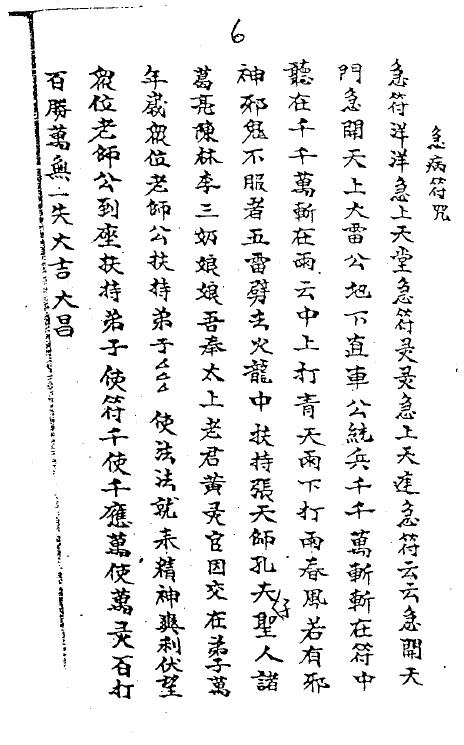 6
急病符咒
急符洋洋急上天堂急符灵灵急上天達急符云云急開天
門急開天上大雷公地下直車公統兵千千萬斬斬在符中
聽在千千萬斬在雨云中上打青天雨下打雨春風若有邪
神邪鬼不服者五雷劈去火龍中扶持張天師孔夫仔聖人諸
葛亮陳林李三奶娘娘吾奉太上老君黃灵官因交在弟子萬
年歲眾位老師公扶持弟子厶厶厶使法法就来精神爽利伏望
眾位老師公到座扶持弟子使符千使千應萬使萬灵百打
百勝萬無一失大吉大昌